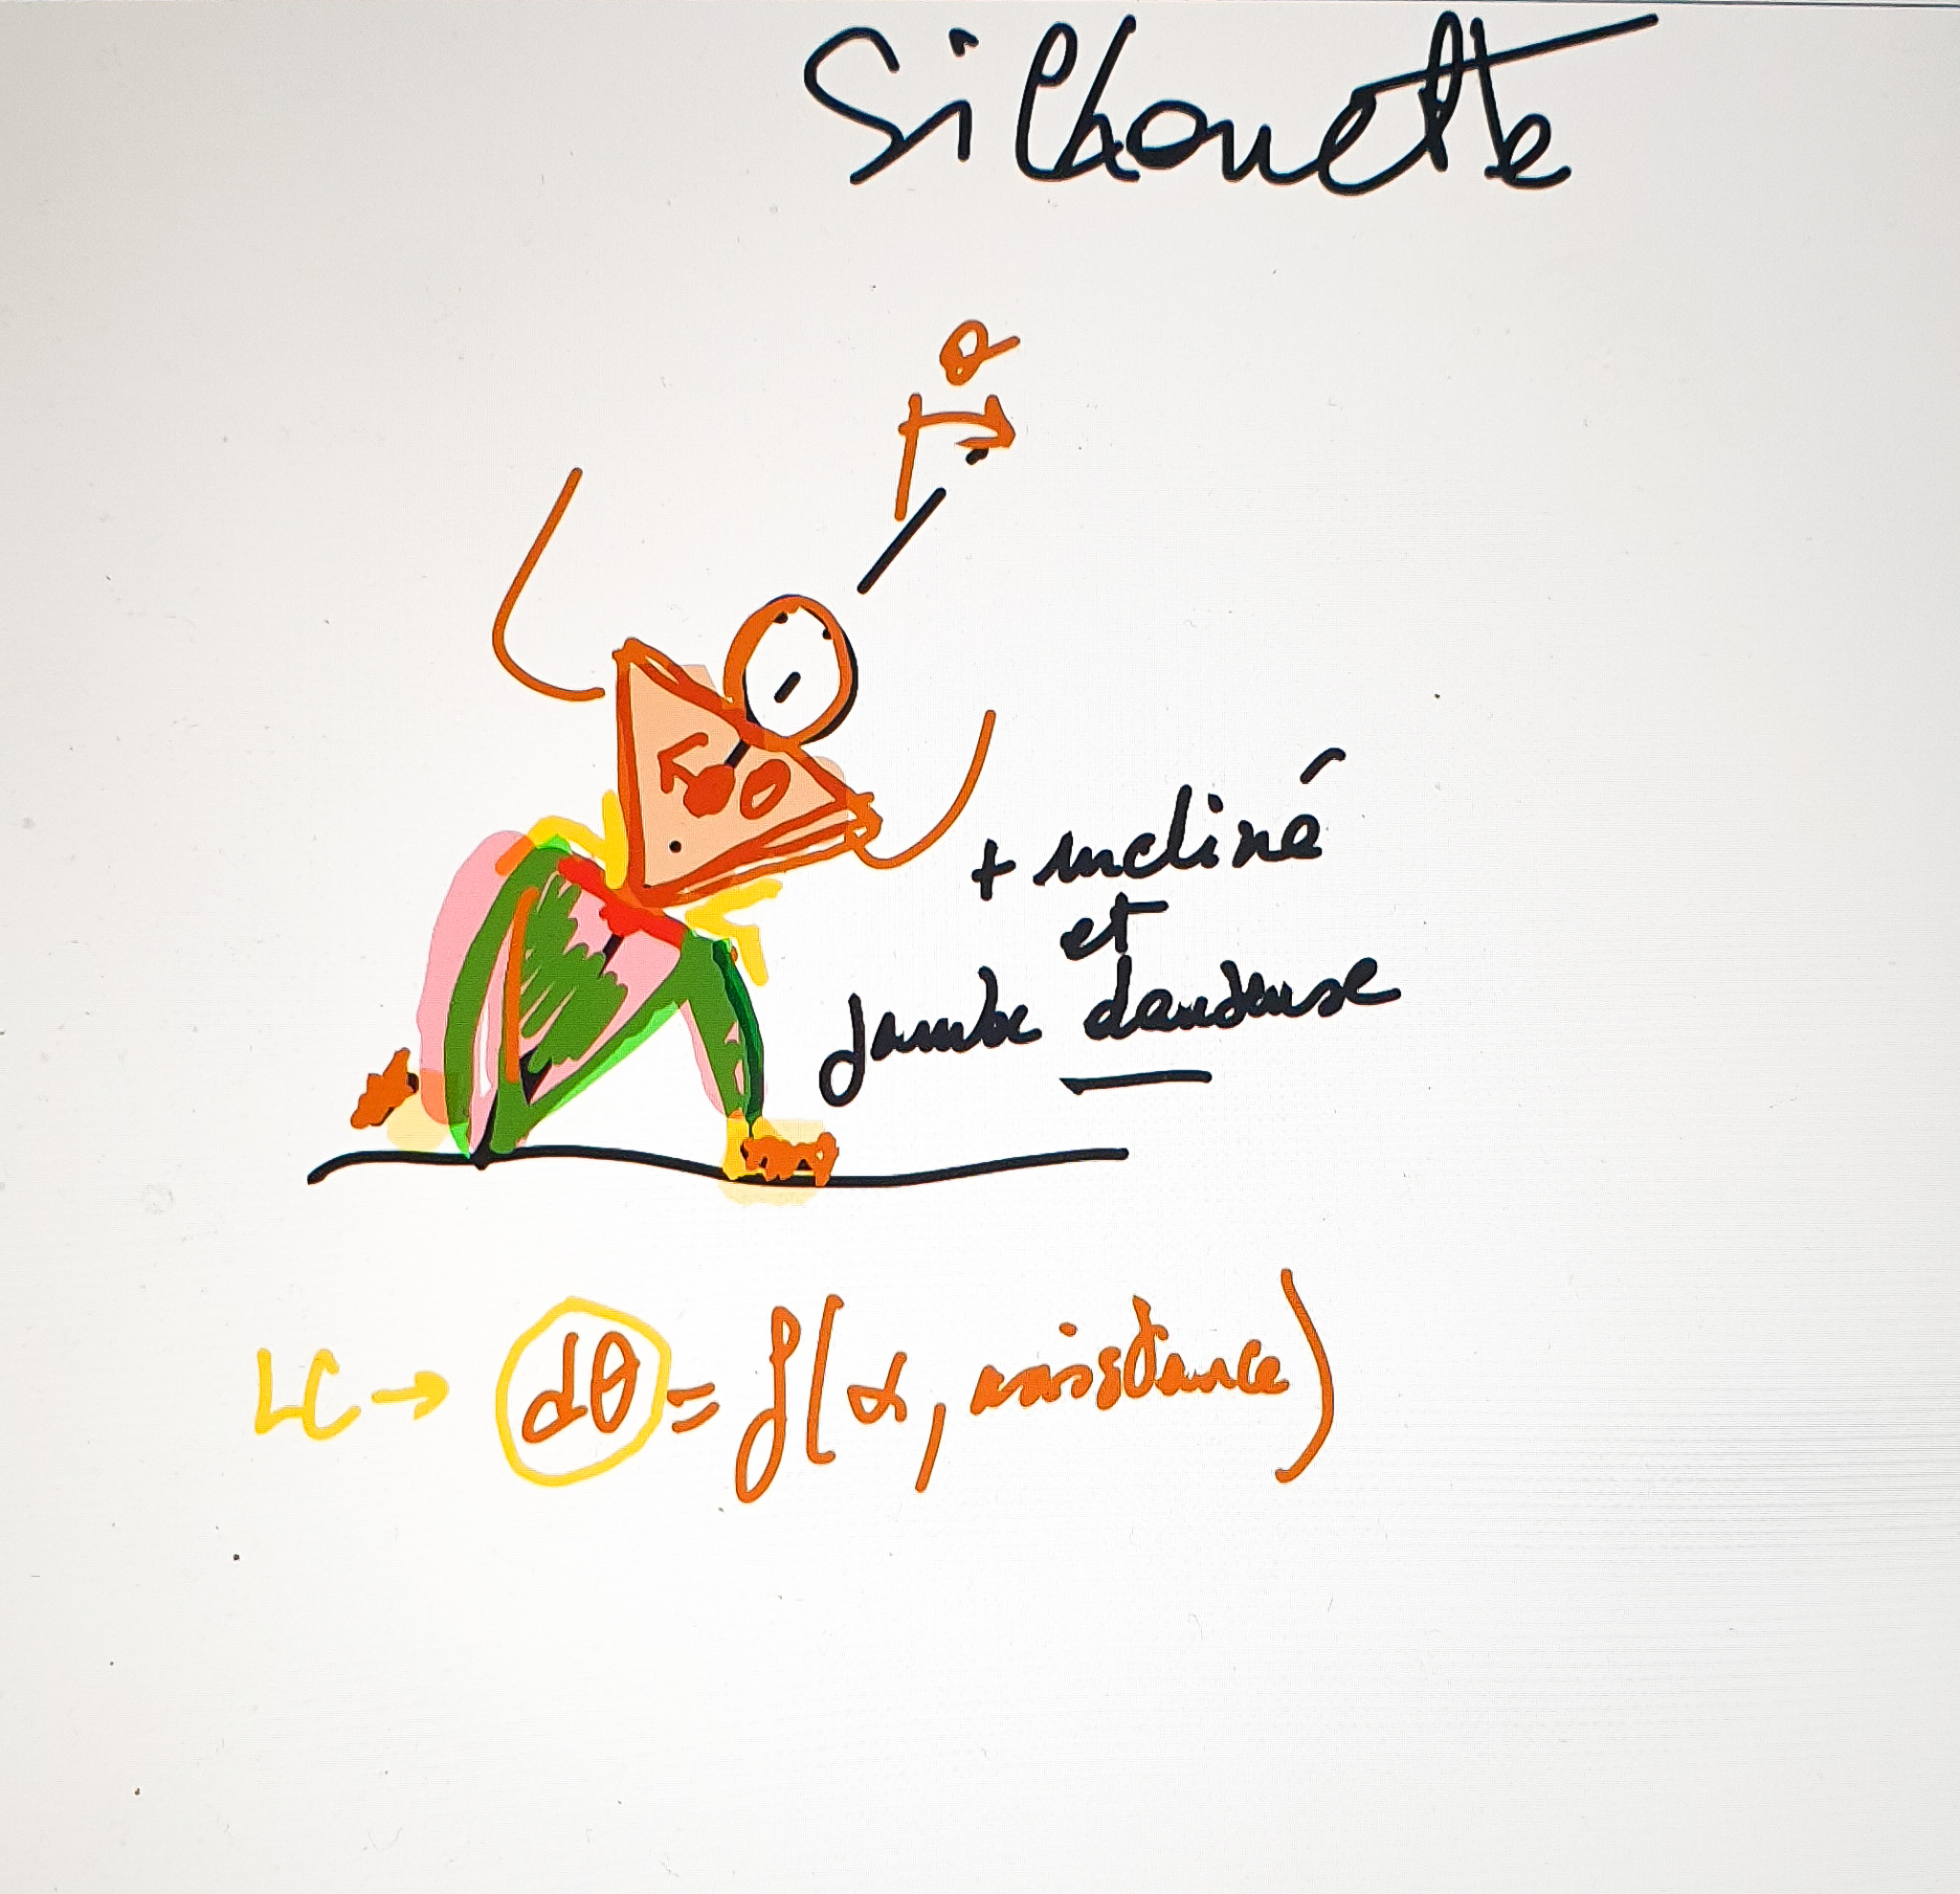 Silhouette
θ
+ incliné
et
Jambe danseuse
LC → dθ = f(α, assistance)